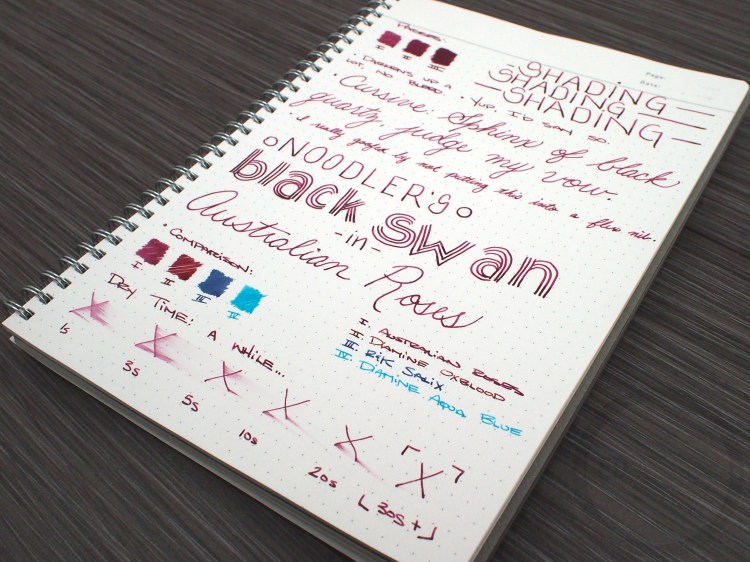 PASSES:
I II III
• DARKENS UP A
LOT, NO BLEED.
- SHADING
SHADING -
- SHADING -
• YUP, I'D SAY SO.
• Cursive: Sphinx of black
quartz, judge my vow.
• I really goofed by not putting this into a flex nib.
NOODLER'S
black swan
-in-
Australian Roses
• COMPARISON:
I II III IV
I. AUSTRALIAN ROSES
II. DIAMINE OXBLOOD
III. R&K SALIX
IV. DIAMINE AQUA BLUE
DRY TIME: A WHILE...
X X X X X X
1s 3s 5s 10s 20s 30s+
Page:
Date: